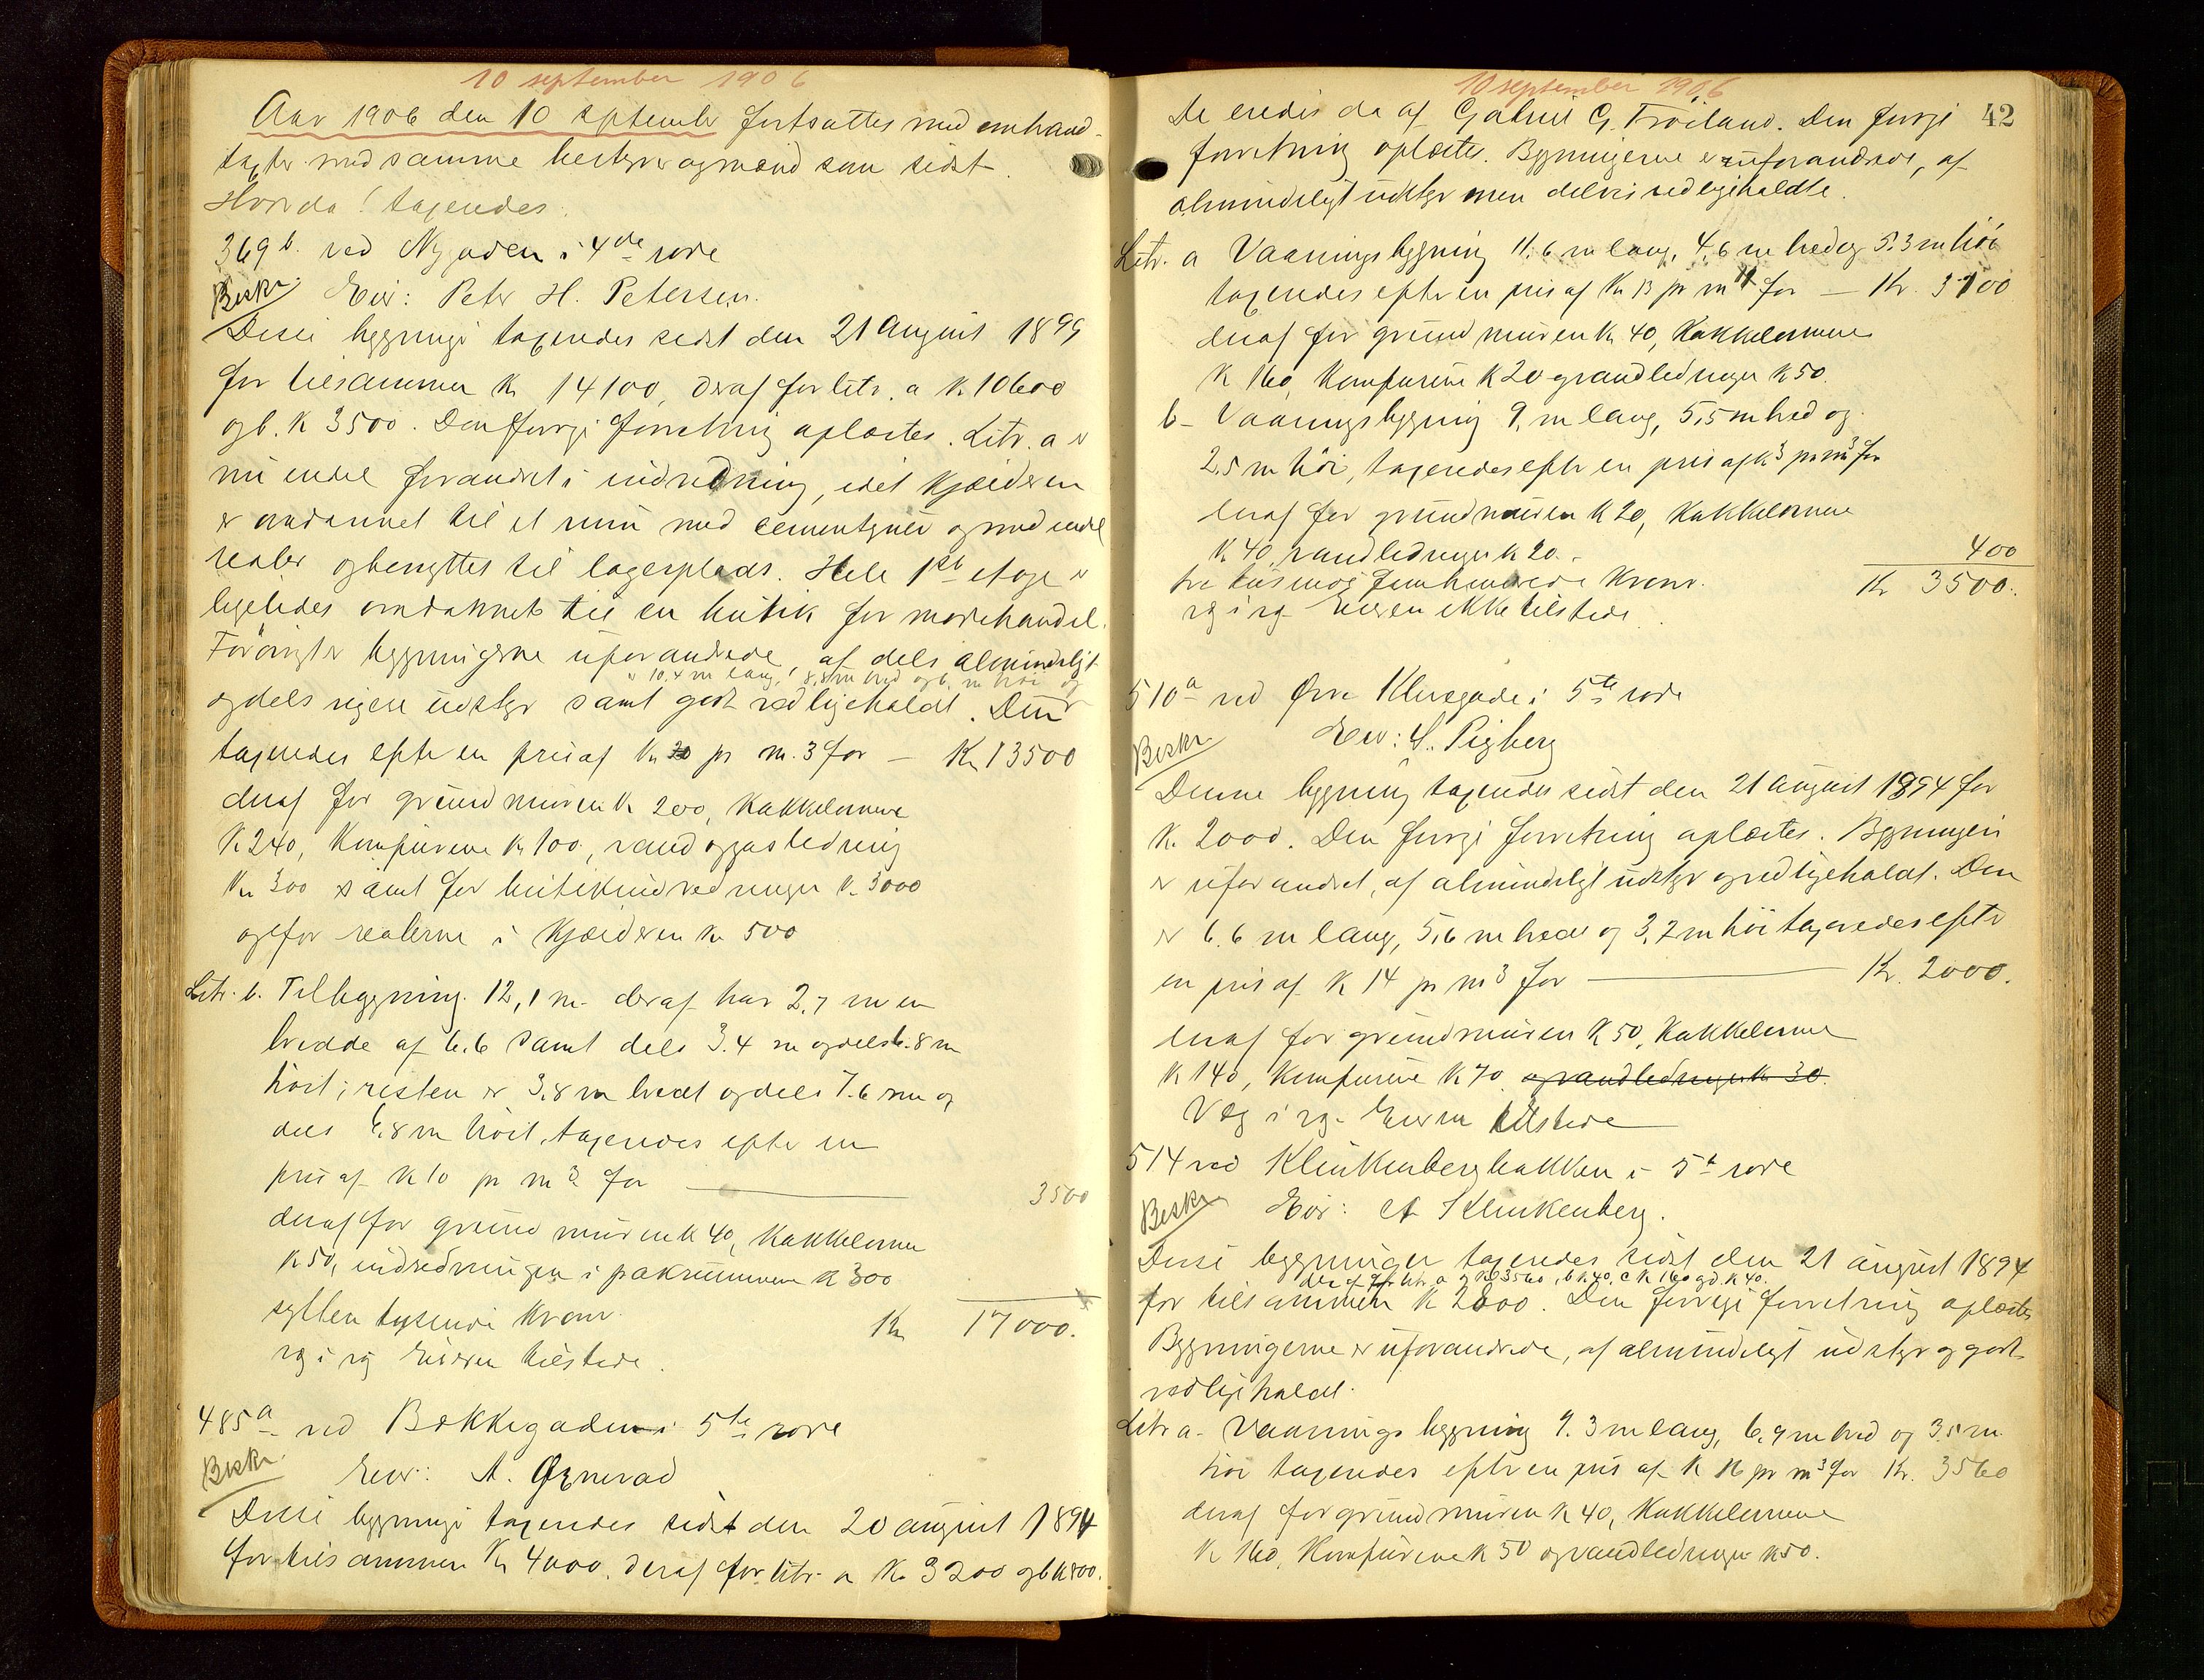 10 september 1906
Aar 1906 den 10 september fortsattes med omhand-
med samme bestyrer og mænd som sidst.
Hvor da! taxeredes:
369 b. ved Nygaden i 4de rode
Beskr. Eier: Peter H. Petersen.
Disse bygninger taxeredes sidst den 21 august 1899
for tilsammen Kr 14100, deraf for litr. a K 10600
og b. K 3500. Den forrige forretning oplæstes. Litr. a er
nu endel forandret i indredning, idet Kjælderen
er omdannet til et rum med cementgulv og med endel
realer og benyttes til lagerplads. Hele 1ste etage er
ligeledes omdannet til en butik for modehandel.
Forøvrigt er bygningerne uforandrede, af dels almindeligt
er 10,4 m lang, 8,8 m bred og 6. m höi og
og dels rigere udstyr samt godt vedligeholdt. Den
taxeredes efter en pris af Kr 20 pr m. 3 for — Kr 13500
deraf for grundmuren K 200, Kakkelovnene
K 240, Komfurene K 100, vand og gasledning
Kr 300 samt for butikindredninger K 3000
og for realerne i Kjælderen Kr 500
Litr. b. Tilbygning. 12,1 m. deraf har 2,7 m en
bredde af 6.6 samt dels 3.4 m og dels 6.8 m
höit; resten er 3,8 m bredt og dels 7.6 m og
dels 6,8 m höit, taxeredes efter en
pris af K 10 pr m 3 for — 3500
deraf for grundmuren K 40, Kakkelovnen
K 50, indredningen i pakrummene K 300
sytten tusende Kroner. Kr 17000.
rg i rg Eieren tilstede.
485 a ved Bækkegaden i 5te rode
Beskr. Eier: A. Øgnevad
Disse bygninger taxeredes sidst den 20 august 1894
for tilsammen Kr 4000, deraf for litr. a Kr 3200 og b K 800.
10 september 1906
42
De eredes da af Gabriel G. Fröiland. Den forrige
forretning oplæstes. Bygningerne er uforandrede, af
almindeligt udstyr men delvis vedligeholdte.
Litr. a Vaaningsbygning 11,6 m lang, 4,6 m bred og 5.3 m höi
taxeredes efter en pris af Kr 13 pr m for — Kr. 3100
deraf for grundmuren K 40, Kakkelovnene
K 160, Komfurene K 20 og vandledninger K 50.
b – Vaaningsbygning 9, m lang, 5,5 m bred og
2,5 m höi, taxeredes efter en pris af K 3 pr m3 for
deraf for grundmuren K 20, Kakkelovnene
K 40, vandledninger K 20. 400
tre tusinde femhundrede Kroner. Kr 3500.
rg i rg Eieren ikke tilstede.
510 a ved Øvre Klevegade i 5te rode
Beskr. Eier: S. Pigberg
Denne bygning taxeredes sidst den 21 august 1894 for
K. 2000. Den forrige forretning oplæstes. Bygningen
er uforandret, af almindeligt udstyr og vedligeholdt. Den
er 6.6 m lang, 5,6 m bred og 3,7 m höi taxeredes efter
en pris af K 14 pr m3 for — Kr. 2000.
deraf for grundmuren K 50, Kakkelovnene
K 140, Komfurene K 70 og vandledninger K 30.
V rg i rg. Eieren tilstede
514 ved Klinkenbergbakken i 5te rode
Beskr. Eier: A Klinkenberg.
Disse bygninger taxeredes sidst den 21 august 1894
deraf for litr. a K 3560, b K 40, c K 160 og d. K 40.
for tilsammen K 2800. Den forrige forretning oplæstes
Bygningerne er uforandrede, af almindeligt udstyr og godt
vedligeholdt.
Litr a – Vaaningsbygning 9.3 m lang, 6,9 m bred og 3,5 m
höi taxeredes efter en pris af K 16 pr m3 for Kr. 3560
deraf for grundmuren K 40, Kakkelovnene
K 160, Komfurene K 50 og vandledninger K 50.